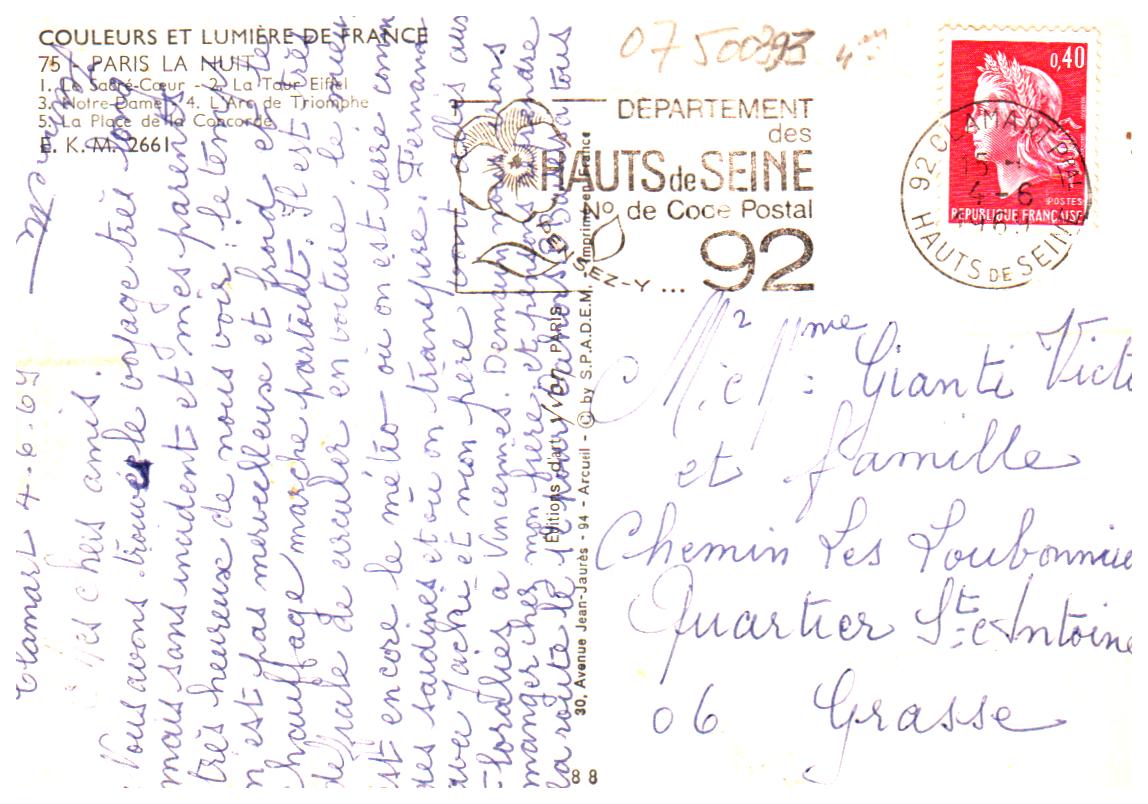 COULEURS ET LUMIÈRE DE FRANCE
75 - PARIS LA NUIT
1. Le Sacré-Cœur - 2. La Tour Eiffel
3. Notre-Dame - 4. L'Arc de Triomphe
5. La Place de la Concorde
E. K. M. 2661
07 500393
DÉPARTEMENT
des
HAUTS de SEINE
Nº de Code Postal
PENSEZ-Y ... 92
0,40
POSTES
REPUBLIQUE FRANÇAISE
92 CLAMART PPAL
4-6
HAUTS DE SEINE
Clamart 4.6.69
Mes chers amis.
Nous avons trouvés le voyage très long
mais sans incident et mes parents
très heureux de nous voir : le temps
n'est pas merveilleux et froid et le
chauffage marche partout. Il est très
de circuler en voiture le mieux
est encore le métro où on est serré com
des sardines et où on transpire. Fernand
avec Jackie et mon père sont allés aux
Floralies à Vincennes. Demain nous irons
manger chez mon frère et pensons prendre
la route le
Editions d'art Yvon, PARIS
30, Avenue Jean-Jaurès - 94 - Arcueil - © by S.P.A.D.E.M. - Imprimé en France
88
Gianti Victo
et famille
Chemin Les Loubonnie
Quartier St-Antoine
06 Grasse